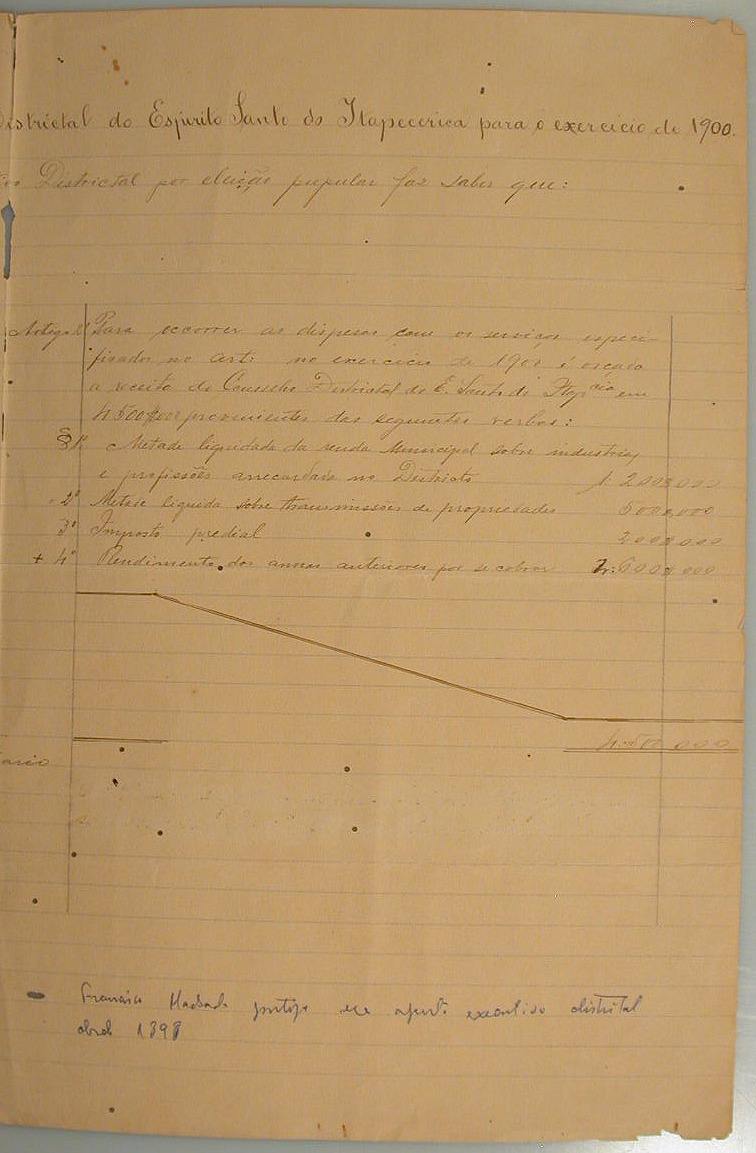 Districtal do Espirito Santo do Itapecerica para o exercicio de 1900.
Districtal por eleição popular faz saber que:
Artigo 2º Para occorrer as dispesas com os serviços especi-
ficados no art: no exercicio de 1900 é orçada
a receita do Conselho Districtal do E. Santo do Itapcica em
4.500$000 provenientes das seguintes verbas:
§ 1º Metade liquidada da renda Municipal sobre industrias
e profissões arrecardada no Districto 1:200$000
2º Metade liquida sobre transmissões de propriedades 500$000
3º Imposto predial 200$000
4º Rendimento dos annos anteriores por se cobrar 2:600$000
4:500 000
ario
Francisco Machado executivo distrital
1898